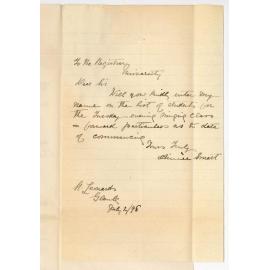 To the Registrar,
University
Dear Sir
Will you kindly enter my
name on the list of students for
the Tuesday evening singing class
– forward particulars as to date
of commencing
Yours Truly
Smart
St Leonards
Glenelg
July 2/96